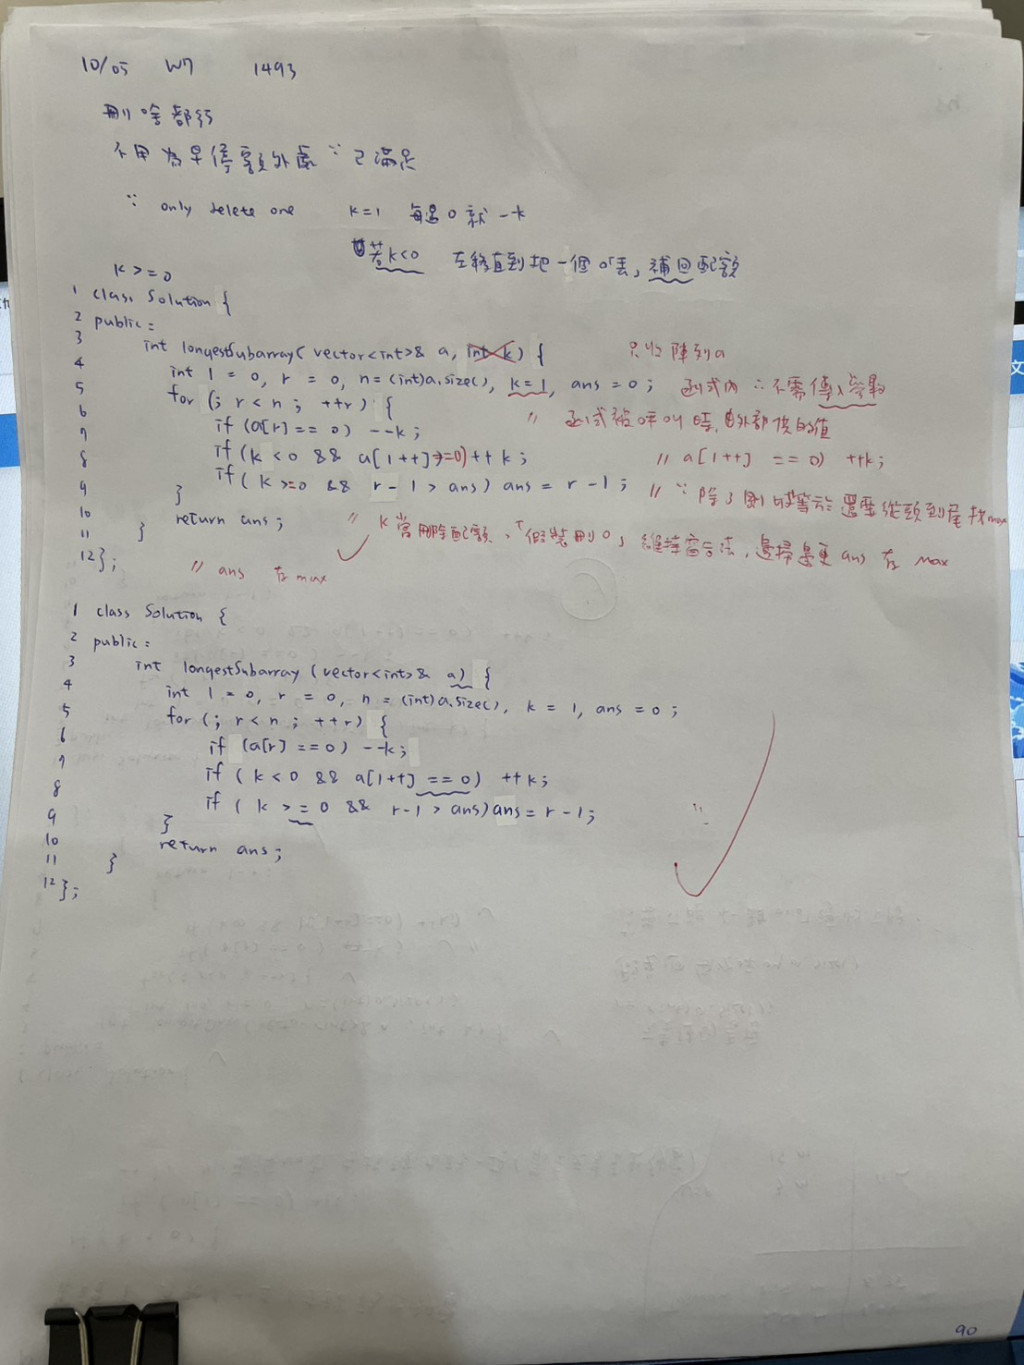 10/05 W7 1493
刪啥都行
不用為早停額外處 ∵ 已滿足
∵ only delete one k=1 每遇0就-k
若k<0 左移直到把一個0「丟」補回配額
k>=0
1 class Solution {
2 public:
3 int longestSubarray(vector<int>& a, int k) { 只收陣列a
4 int l = 0, r = 0, n = (int)a.size(), k=1, ans = 0; 函式內 ∵不需傳入參數
5 for (; r < n ; ++r) { // 函式被呼叫時,由外部 的值
6 if (a[r] == 0) --k;
7 if (k < 0 && a[l++] == 0) ++k; // a[l++] == 0) ++k;
8 if (k >=0 && r - l > ans) ans = r - l; // ∵ 除了刪 等於 還要從頭到尾找max
9 }
10 return ans; // k當刪除配額、「假裝刪0」維持窗合法,邊掃邊更ans 存 max
11 }
12 }; // ans 存max
1 class Solution {
2 public:
3 int longestSubarray (vector<int>& a) {
4 int l = 0, r = 0, n = (int)a.size(), k = 1, ans = 0;
5 for (; r < n ; ++r) {
6 if (a[r] == 0) --k;
7 if (k < 0 && a[l++] == 0) ++k;
8 if (k >= 0 && r-l > ans) ans = r - l;
9 }
10 return ans;
11 }
12 };
90